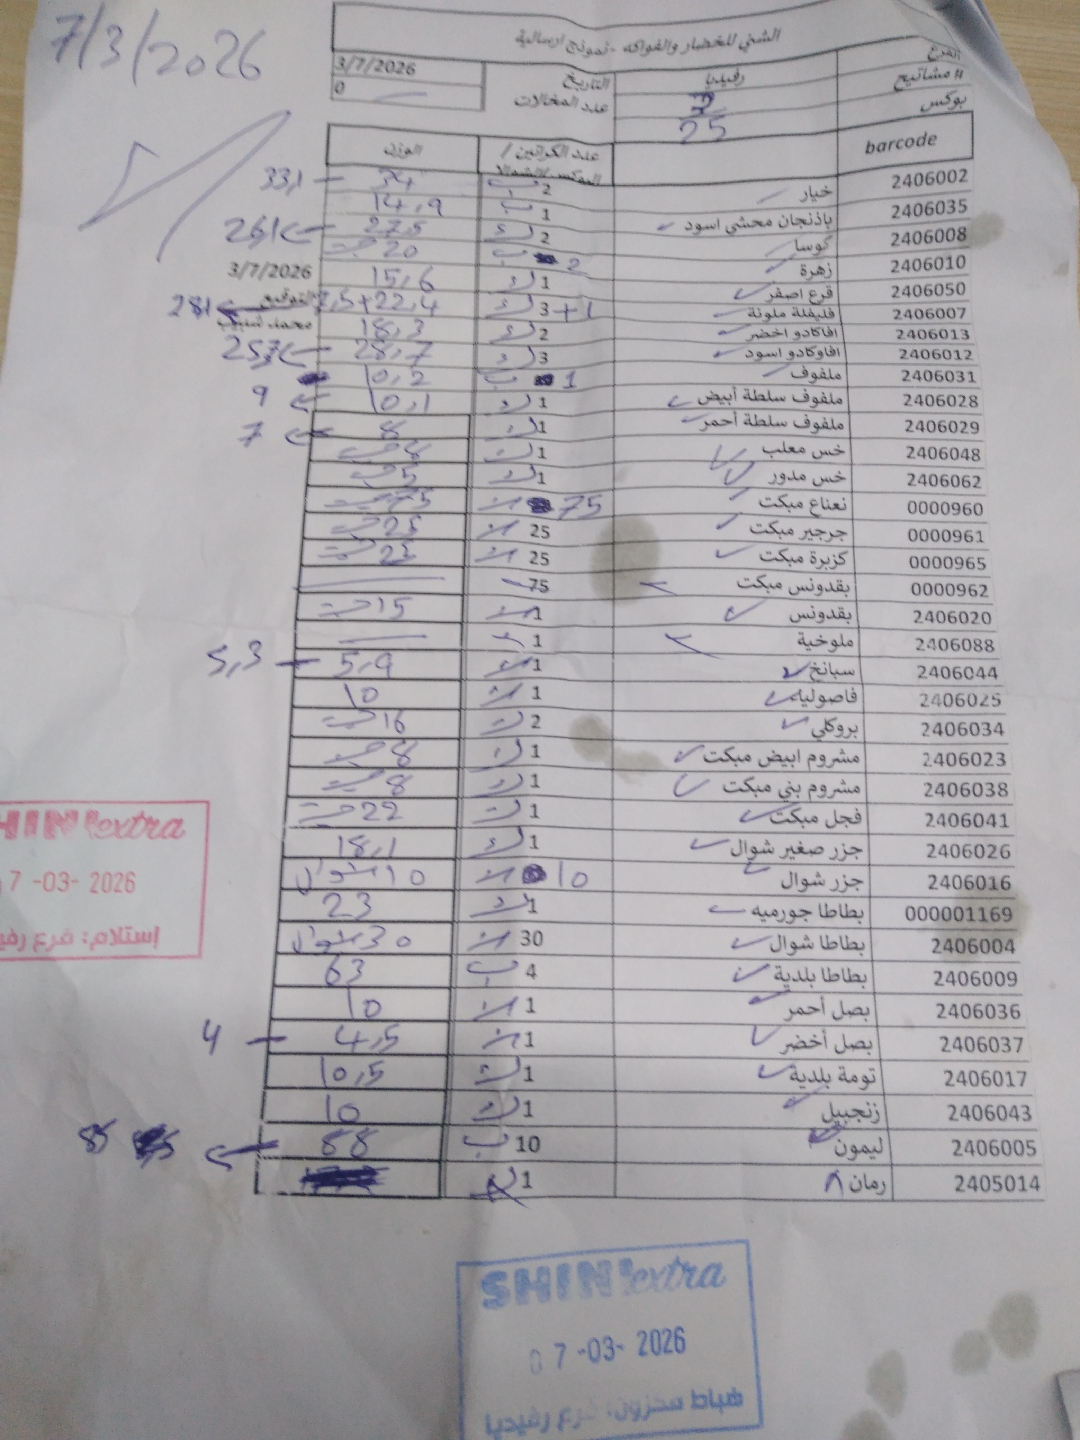 7/3/2026
الشني للخضار والفواكه - نموذج ارسالية
الفرع رفيديا التاريخ 3/7/2026
# مشاتيح عدد المخالات 0
بوكس 25
barcode عدد الكراتين / الوزن
2406002 خيار 2 ب 34 33,1
2406035 باذنجان محشي اسود 1 ب 14,9
2406008 كوسا 2 ك 27,5 26,1
2406010 زهرة 2 ب 20
2406050 قرع اصفر 1 ك 15,6 3/7/2026
2406007 فليفلة ملونة 3+1 ك 22,4 28,1 التوقيع
2406013 افاكادو اخضر 2 ك 18,3 محمد شبيب
2406012 افاوكادو اسود 3 ك 28,7 25,7
2406031 ملفوف 1 ب 10,2
2406028 ملفوف سلطة أبيض 1 ك 10,1 9
2406029 ملفوف سلطة أحمر 1 ك 8 7
2406048 خس معلب 1 ك 8
2406062 خس مدور 1 ك 5
0000960 نعناع مبكت 75 75
0000961 جرجير مبكت 25 25
0000965 كزبرة مبكت 25 25
0000962 بقدونس مبكت 75
2406020 بقدونس 1 15
2406088 ملوخية 1
2406044 سبانخ 1 5,9 5,3
2406025 فاصوليه 1 10
2406034 بروكلي 2 ك 16
2406023 مشروم ابيض مبكت 1 ك 8
2406038 مشروم بني مبكت 1 ك 8
2406041 فجل مبكت 1 ك 22
2406026 جزر صغير شوال 1 ك 18,1
2406016 جزر شوال 10 10 شوال
000001169 بطاطا جورميه 1 ك 23
2406004 بطاطا شوال 30 30 شوال
2406009 بطاطا بلدية 4 ب 63
2406036 بصل أحمر 1 10
2406037 بصل أخضر 1 4,5 4
2406017 تومة بلدية 1 ك 10,5
2406043 زنجبيل 1 ك 10
2406005 ليمون 10 ب 88 85
2405014 رمان 1
SHINI extra
07-03-2026
إستلام: فرع رفيديا
SHINI extra
07-03-2026
فرع رفيديا